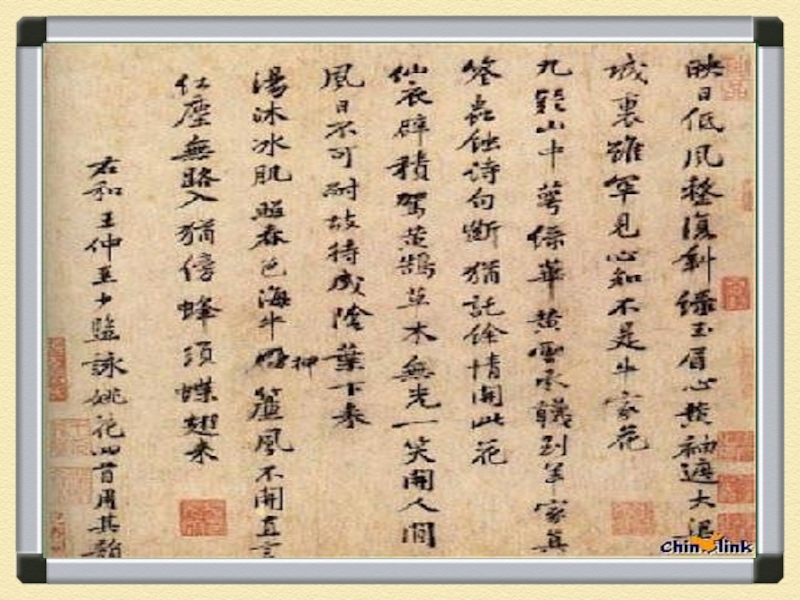 映日低風整復斜綠玉眉心黃袖遮大梁
城裏雖罕見心知不是牛家花
九疑山中萼綠華黃雲承襪到羊家真
筌蟲蝕詩句斷猶託餘情開此花
仙衣襞積駕黃鵠草木無光一笑開人間
風日不可耐故待成陰葉下來
湯沐冰肌照春色海牛押簾風不開直言
紅塵無路入猶傍蜂須蝶翅來
右和王仲至少監詠姚花四首用其韻